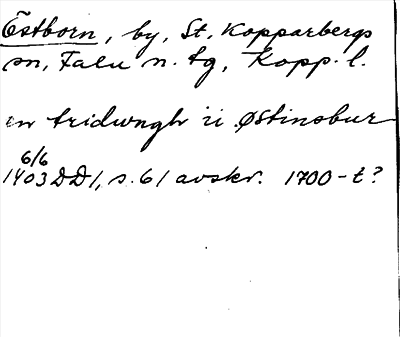 Östborn, by, St. Kopparbergs
sn, Falu n. tg, Kopp. l.
en tridwngh ii Østinsbur
6/6
1403 DD 1, s. 61 avskr. 1700-t?